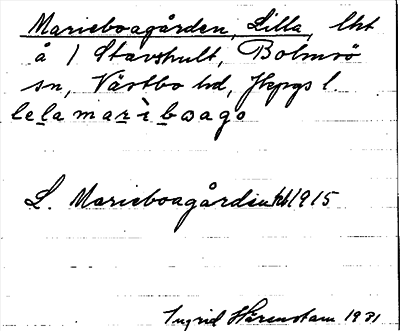 Marieboagården, Lilla, lht
å 1 Stavshult, Bolmsö
sn, Västbo hd, Jkpgs l.
lela mariboago
L. Marieboagården 1915
Ingrid Härenstam 1931